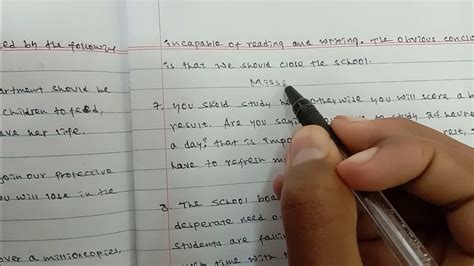 ed by the following
artment should be
children to feed,
ave her life.
join our protective
ou will lose in the
over a million copies,
incapable of reading and writing. The obvious conclu
is that we should close the school.
Miss
7. You shold study h otherwide you will score a b
result. Are you sayi to study 24 hours
a day? that is impo rest,
have to refresh m
8. The school boa
desperate need o
students are fallin
time with t